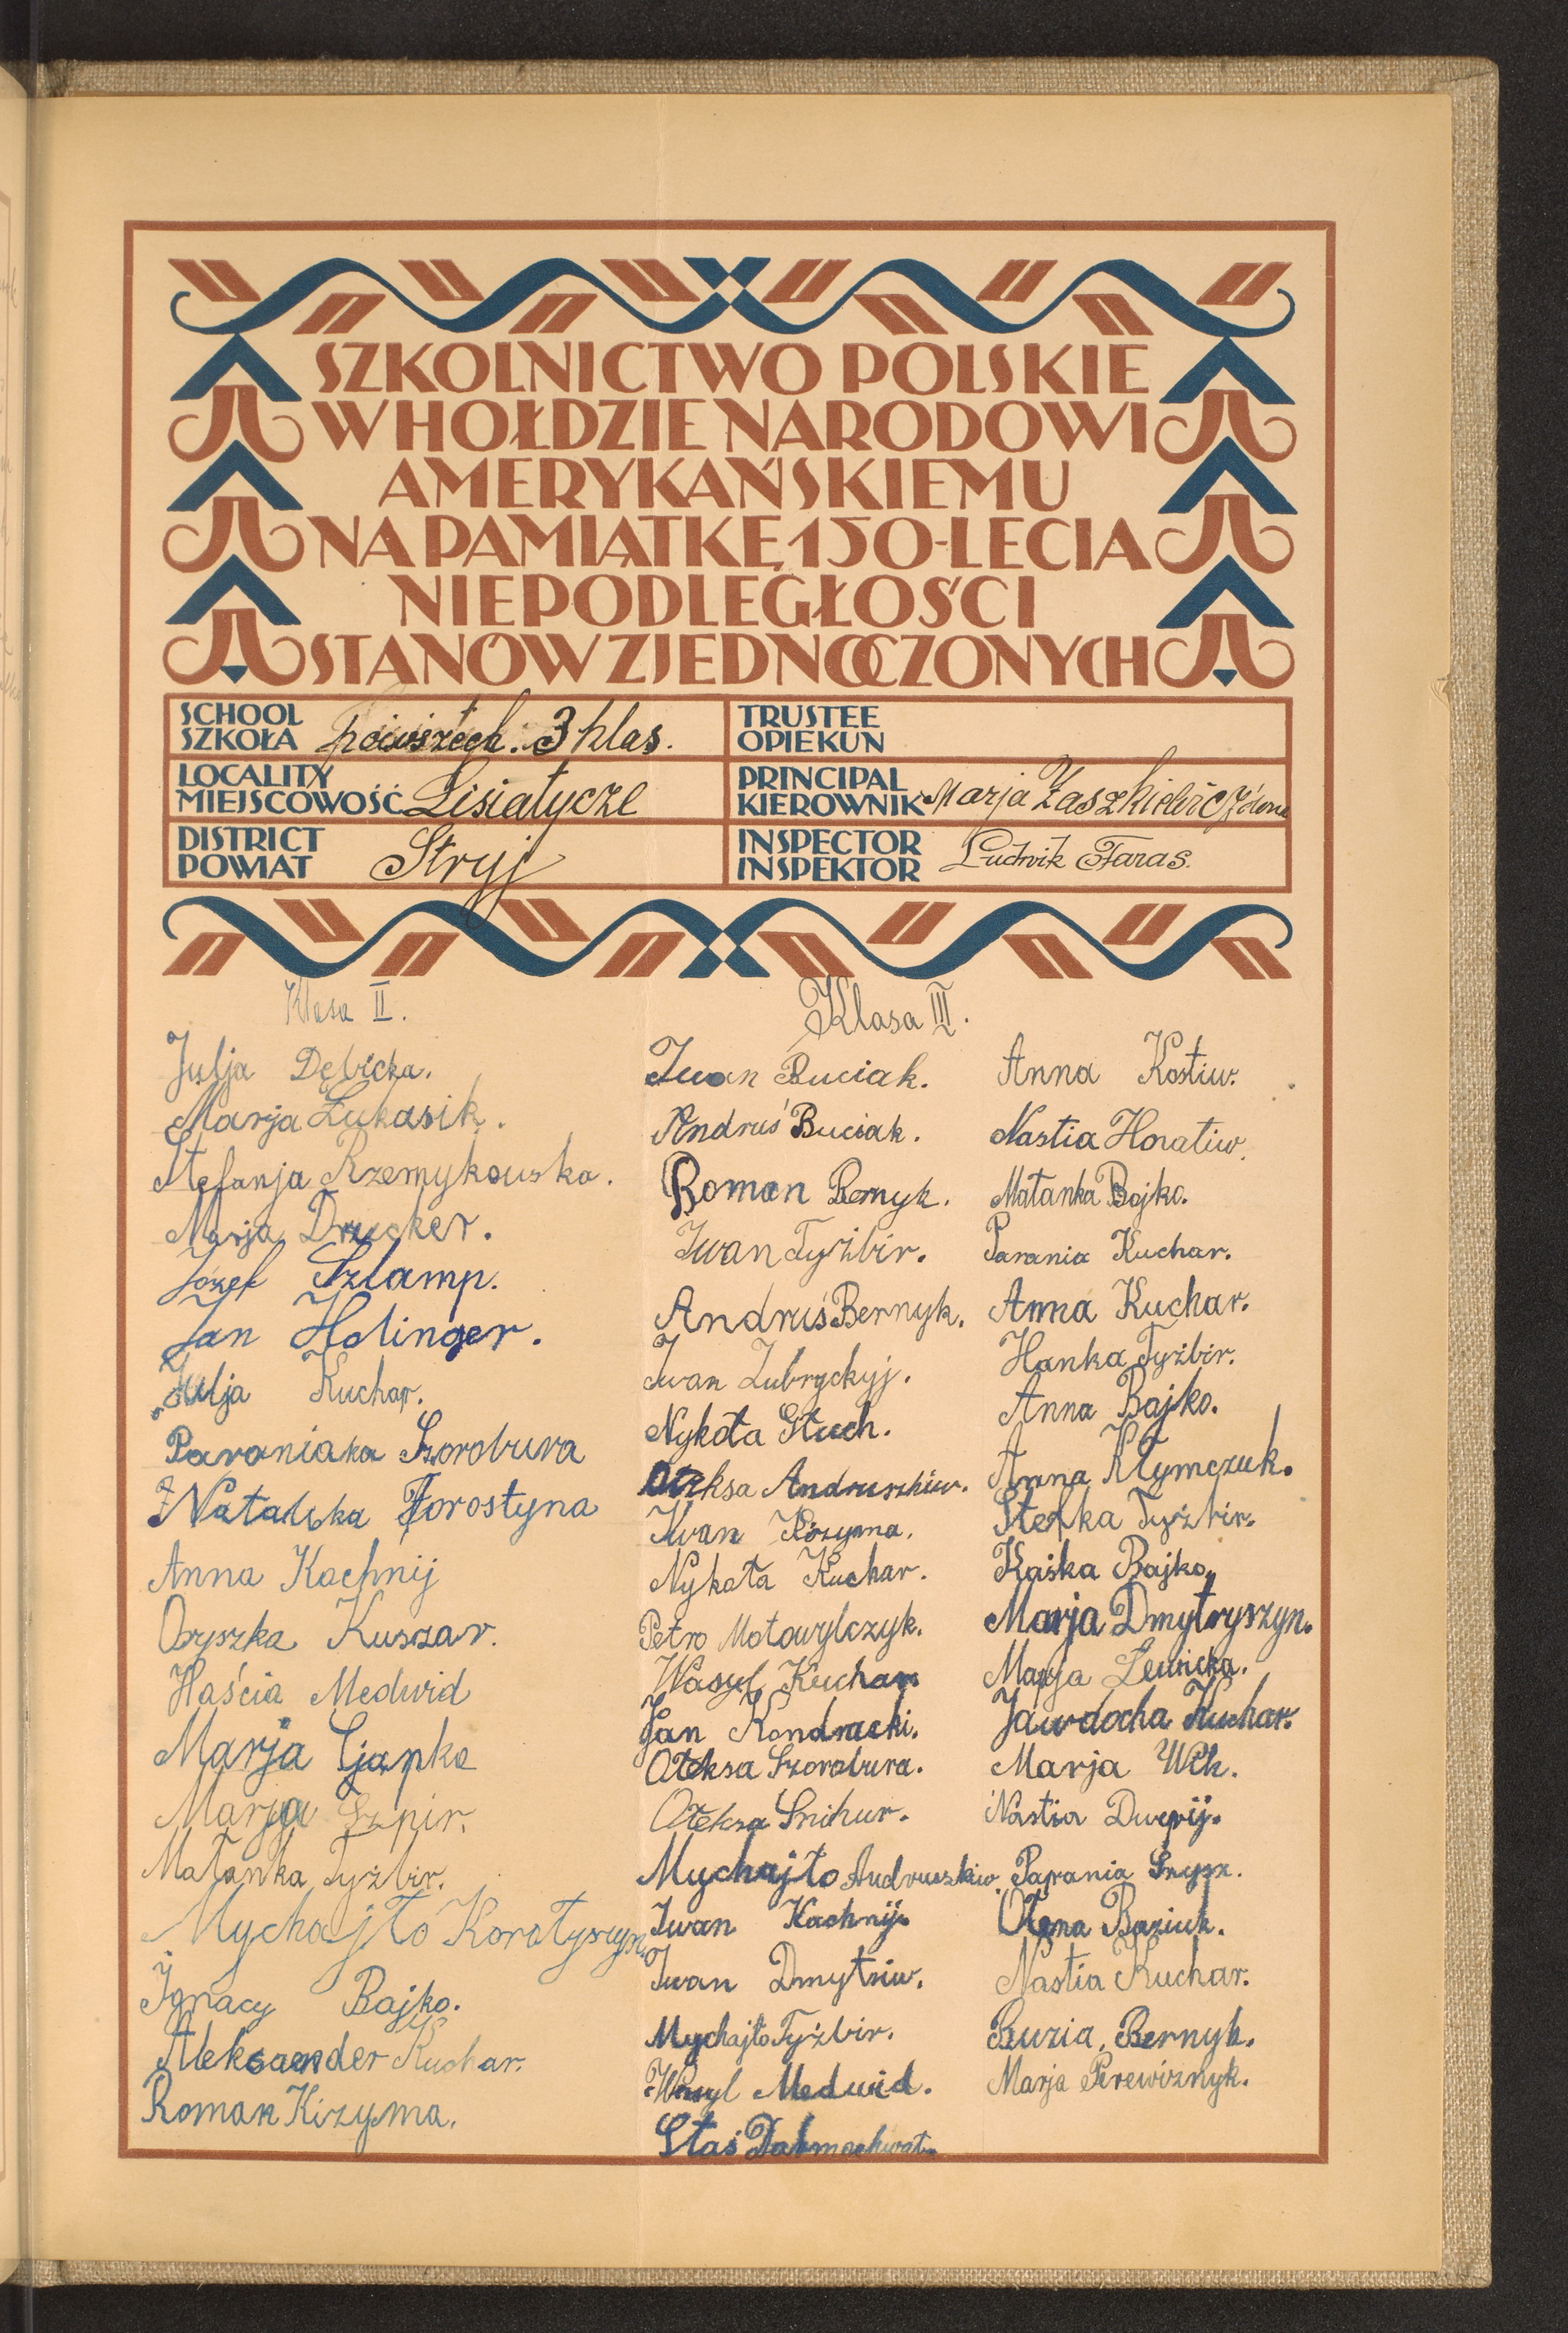 SZKOLNICTWO POLSKIE
W HOŁDZIE NARODOWI
AMERYKAŃSKIEMU
NA PAMIĄTKĘ 150-LECIA
NIEPODLEGŁOŚCI
STANÓW ZJEDNOCZONYCH
SCHOOL
SZKOŁA powszech. 3 klas.
TRUSTEE
OPIEKUN
LOCALITY
MIEJSCOWOŚĆ Lisiatycze
PRINCIPAL
KIEROWNIK Marja
DISTRICT
POWIAT Stryj
INSPECTOR
INSPEKTOR Ludwik Taras.
Klasa II.
Julja Dębicka.
Marja Łukasik.
Stefanja Rzemykowska.
Marja Drucker.
Józef Szlamp.
Jan Holinger.
Julja Kuchar.
Paraniaka Szorobura
Natalka Forostyna
Anna Kachnij
Oryszka Kuszar.
Haścia Medwid
Marja Cjapko
Marja Szpir.
Małanka Tyżbir.
Mychajło Korotyszyn
Ignacy Bajko.
Aleksander Kuchar.
Roman Kizyma.
Klasa III.
Iwan Buciak.
Andruś Buciak.
Roman Bernyk.
Iwan Tyżbir.
Andruś Bernyk.
Iwan Zubryckyj.
Nykoła Głuch.
Ołeksa Andruszkiw.
Iwan Kizyma.
Nykoła Kuchar.
Petro Motowylczyk.
Wasyl Kuchar
Jan Kondracki.
Ołeksa Szorobura.
Ołeksa Snihur.
Mychajło Andruszkiw
Iwan Kachnij.
Iwan Dmytriw.
Mychajło Tyżbir.
Wasyl Medwid.
Staś Dalmachwat.
Anna Kostiw.
Nastia Horatiw.
Małanka Bojko.
Parania Kuchar.
Anna Kuchar.
Hanka Tyżbir.
Anna Bajko.
Anna Kłymczuk.
Stefka Tyżbir.
Kaśka Bajko.
Marja Dmytryszyn.
Marja Lewicka.
Jawdocha Kuchar.
Marja Wilk.
Nastia Dwerij.
Parania Hrysz.
Ołena Baziuk.
Nastia Kuchar.
Ruzia Bernyk.
Marja Perewiznyk.